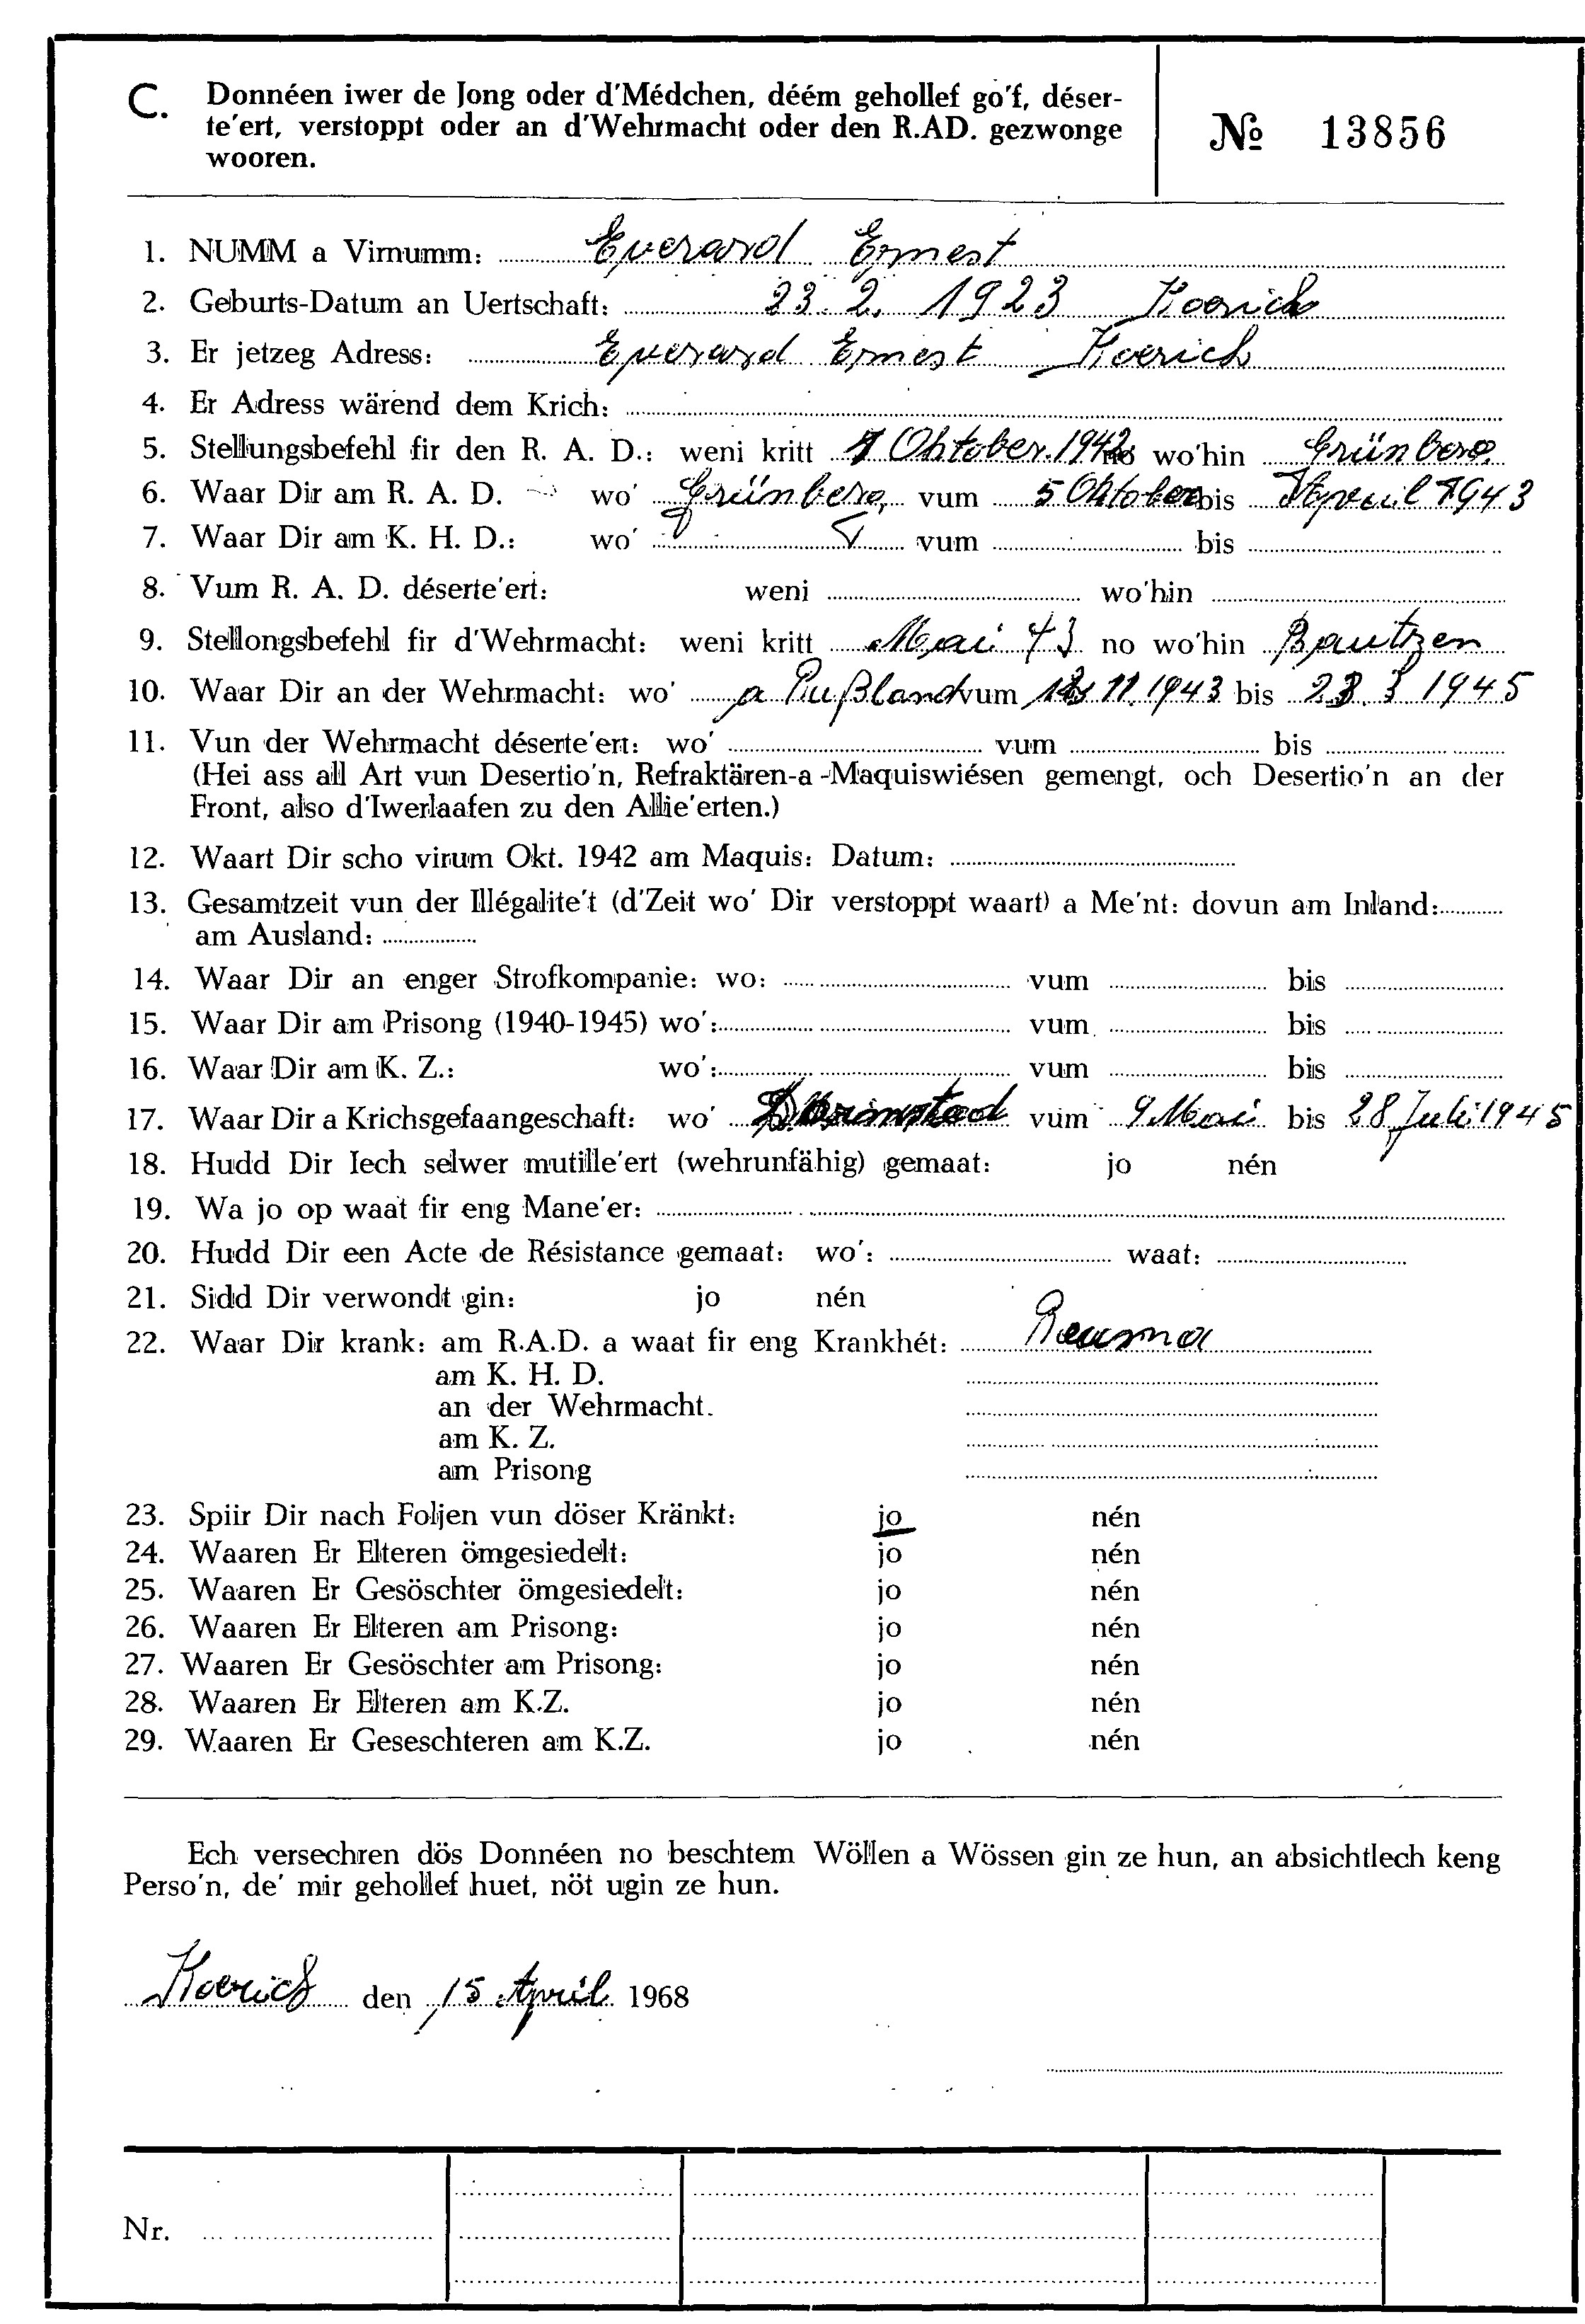 C. Donnéen iwer de Jong oder d'Médchen, déém gehollef go'f, déser-
te'ert, verstoppt oder an d'Wehrmacht oder den R.AD. gezwonge
wooren.
№ 13856
1. NUMM a Virnumm: Everard Ernest
2. Geburts-Datum an Uertschaft: 23. 2. 1923 Koerich
3. Er jetzeg Adress: Everard Ernest Koerich
4. Er Adress wärend dem Krich:
5. Stellungsbefehl fir den R. A. D.: weni kritt 1 Oktober 1942 no wo'hin Grünberg
6. Waar Dir am R. A. D. wo' Grünberg vum 5 Oktober bis April 1943
7. Waar Dir am K. H. D.: wo' vum bis
8. Vum R. A. D. déserte'ert: weni wo'hin
9. Stellongsbefehl fir d'Wehrmacht: weni kritt Mai 43 no wo'hin Bautzen
10. Waar Dir an der Wehrmacht: wo' a Rußland vum 11. 1943 bis 1945
11. Vun der Wehrmacht déserte'ert: wo' vum bis
(Hei ass all Art vun Desertio'n, Refraktären-a-Maquiswiésen gemengt, och Desertio'n an der
Front, also d'Iwerlaafen zu den Allie'erten.)
12. Waart Dir scho virum Okt. 1942 am Maquis: Datum:
13. Gesamtzeit vun der Illégalite't (d'Zeit wo' Dir verstoppt waart) a Me'nt: dovun am Inland:
am Ausland:
14. Waar Dir an enger Strofkompanie: wo: vum bis
15. Waar Dir am Prisong (1940-1945) wo': vum bis
16. Waar Dir am K. Z.: wo': vum bis
17. Waar Dir a Krichsgefaangeschaft: wo' vum 9 Mai bis 28 Juli 1945
18. Hudd Dir Iech selwer mutille'ert (wehrunfähig) gemaat: jo nén
19. Wa jo op waat fir eng Mane'er:
20. Hudd Dir een Acte de Résistance gemaat: wo': waat:
21. Sidd Dir verwondt gin: jo nén
22. Waar Dir krank: am R.A.D. a waat fir eng Krankhét: Reuma
am K. H. D.
an der Wehrmacht.
am K. Z.
am Prisong
23. Spiir Dir nach Foljen vun döser Kränkt: jo nén
24. Waaren Er Elteren ömgesiedelt: jo nén
25. Waaren Er Gesöschter ömgesiedelt: jo nén
26. Waaren Er Elteren am Prisong: jo nén
27. Waaren Er Gesöschter am Prisong: jo nén
28. Waaren Er Elteren am K.Z. jo nén
29. Waaren Er Geseschteren am K.Z. jo nén
Ech versechren dös Donnéen no beschtem Wöllen a Wössen gin ze hun, an absichtlech keng
Perso'n, de' mir gehollef huet, nöt ugin ze hun.
Koerich den 15 April 1968
Nr.